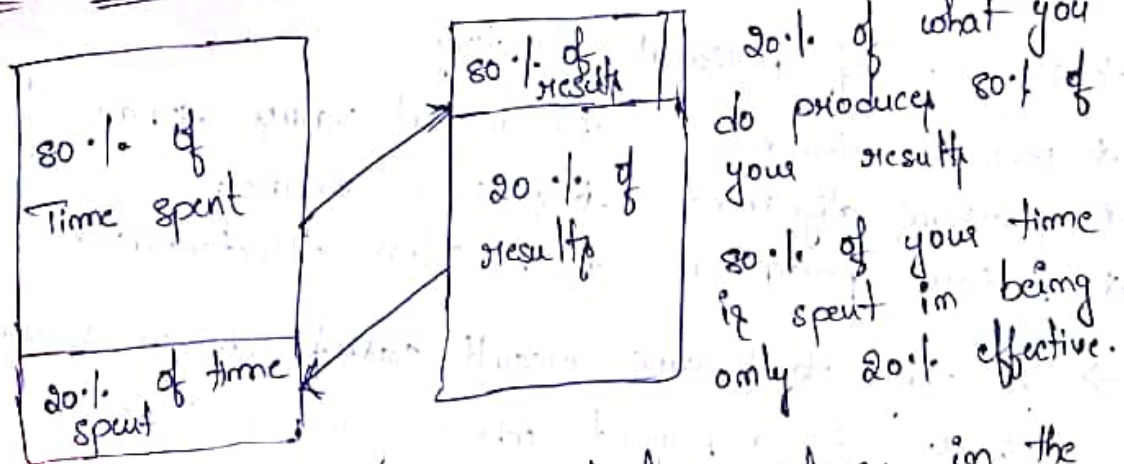 80 % of
Time spent
20% of time
spent
80 % of
results
20 % of
results
20% of what you
do produces 80% of
your results
80% of your time
is spent in being
only 20% effective.
in the